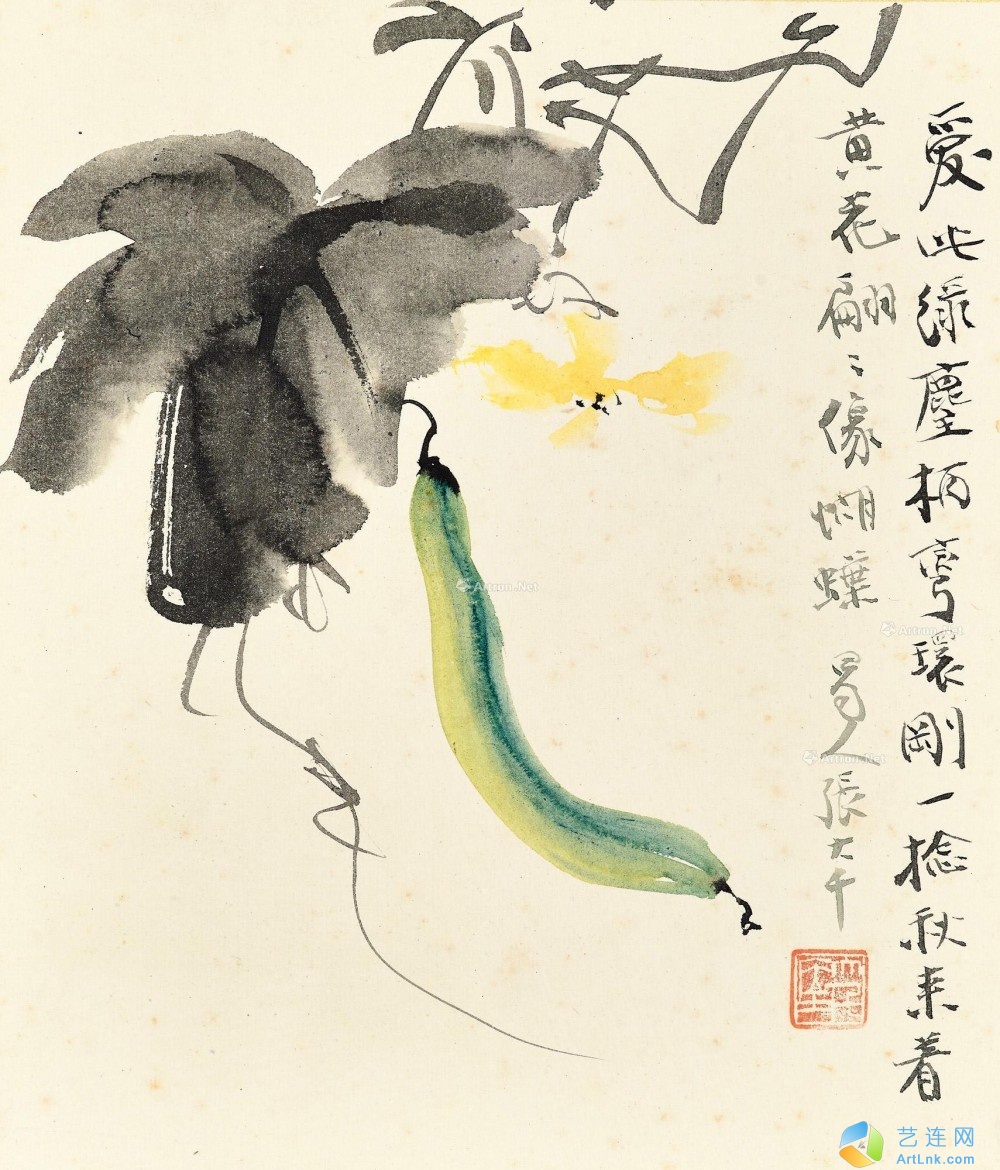 愛此綠塵柄彎環剛一捻秋来着
黄花翩〻像蝴蝶 蜀人張大千
Artron.Net
Artron.Net
Artron.Net
艺连网
ArtLnk.com